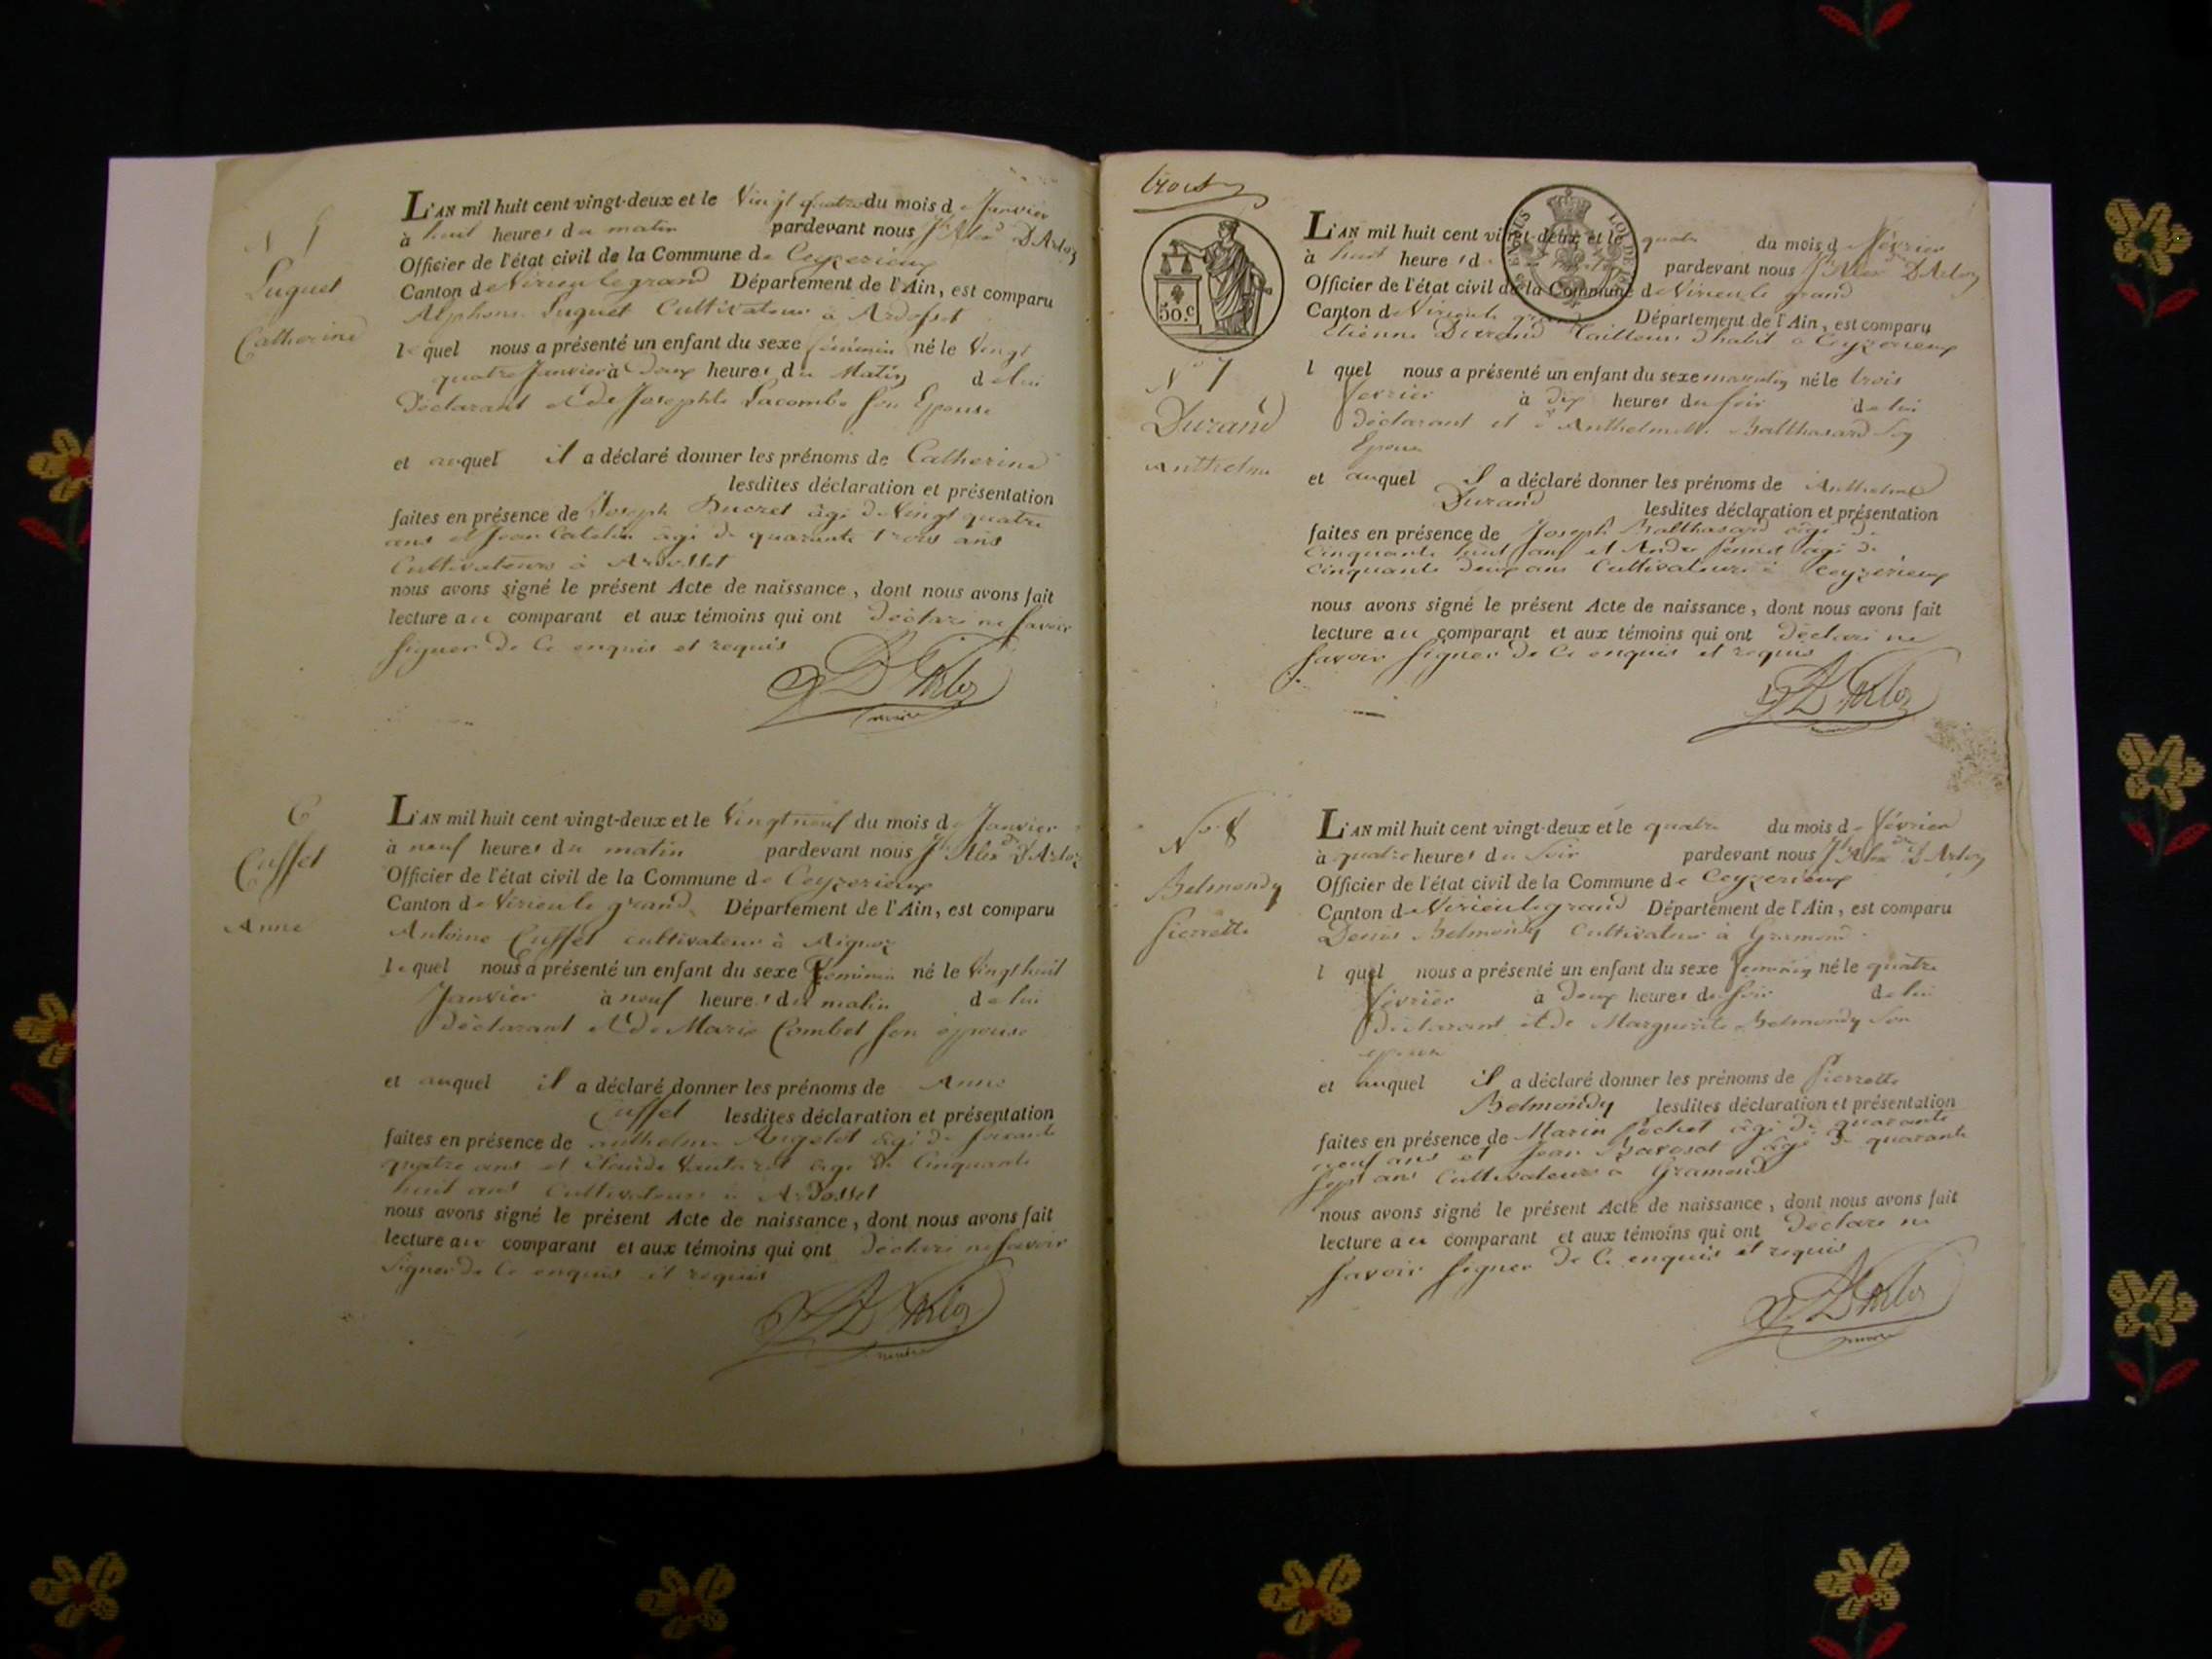 N 5
Luguet
Catherine
L'AN mil huit cent vingt-deux et le Vingt quatre du mois de Janvier
à huit heures du matin pardevant nous Jh Alex D'Arloz
Officier de l'état civil de la Commune de Ceyzerieux
Canton de Virieu le grand Département de l'Ain, est comparu
Alphonse Luguet Cultivateur à Ardosset
lequel nous a présenté un enfant du sexe féminin né le Vingt
quatre Janvier à Deux heures du Matin de lui
Déclarant et de Josephte Lacombe son Epouse
et auquel il a déclaré donner les prénoms de Catherine
lesdites déclaration et présentation
faites en présence de Joseph Ducret âgé de Vingt quatre
ans et Jean Catelin âgé de quarante trois ans
Cultivateurs à Ardosset
nous avons signé le présent Acte de naissance, dont nous avons fait
lecture au comparant et aux témoins qui ont déclaré ne savoir
signer de ce enquis et requis
D'Arloz
maire
6
Cuffet
Anne
L'AN mil huit cent vingt-deux et le Vingt neuf du mois de Janvier
à neuf heures du matin pardevant nous Jh Alexdre D'Arloz
Officier de l'état civil de la Commune de Ceyzerieux
Canton de Virieu le grand Département de l'Ain, est comparu
Antoine Cuffet cultivateur à Aignoz
lequel nous a présenté un enfant du sexe feminin né le Vingt huit
Janvier à neuf heures du matin de lui
déclarant et de Marie Combet son épouse
et auquel il a déclaré donner les prénoms de Anne
Cuffet lesdites déclaration et présentation
faites en présence de anthelme Angelot âgé de soixante
quatre ans et Claude âgé de Cinquante
huit ans Cultivateurs à Ardosset
nous avons signé le présent Acte de naissance, dont nous avons fait
lecture au comparant et aux témoins qui ont déclaré ne savoir
signer de ce enquis et requis
D'Arloz
maire
trois
50.c
EN SUS
LOI DE
N° 7
Durand
Anthelme
L'AN mil huit cent vingt-deux et le quatre du mois de Février
à huit heures d matin pardevant nous Jh Alexdre D'Arloz
Officier de l'état civil de la Commune de Virieu le grand
Canton de Virieu le grand Département de l'Ain, est comparu
Etienne Durand Tailleur d'habit à Ceyzerieux
l quel nous a présenté un enfant du sexe masculin né le trois
Fevrier à dix heures du soir de lui
déclarant et d'Anthelmette Balthasard son
Epouse
et auquel il a déclaré donner les prénoms de Anthelme
Durand lesdites déclaration et présentation
faites en présence de Joseph Balthasard âgé de
Cinquante huit ans et André Pernet âgé de
Cinquante deux ans Cultivateurs à Ceyzerieux
nous avons signé le présent Acte de naissance, dont nous avons fait
lecture au comparant et aux témoins qui ont déclaré ne
savoir signer de ce enquis et requis
D'Arloz
N° 8
Belmondy
Pierrette
L'AN mil huit cent vingt-deux et le quatre du mois de Février
à quatre heures du Soir pardevant nous Jh Alexdre D'Arloz
Officier de l'état civil de la Commune de Ceyzerieux
Canton de Virieu le grand Département de l'Ain, est comparu
Denis Belmondy Cultivateur à Gramond
l quel nous a présenté un enfant du sexe feminin né le quatre
février à Deux heures du soir de lui
déclarant et de Marguerite Belmondy son
epouse
et auquel il a déclaré donner les prénoms de Pierrette
Belmondy lesdites déclaration et présentation
faites en présence de Marin Pochet âgé de quarante
neuf ans et Jean Bavoset âgé de quarante
sept ans Cultivateurs à Gramond
nous avons signé le présent Acte de naissance, dont nous avons fait
lecture au comparant et aux témoins qui ont déclaré ne
savoir signer de ce enquis et requis
D'Arloz
maire